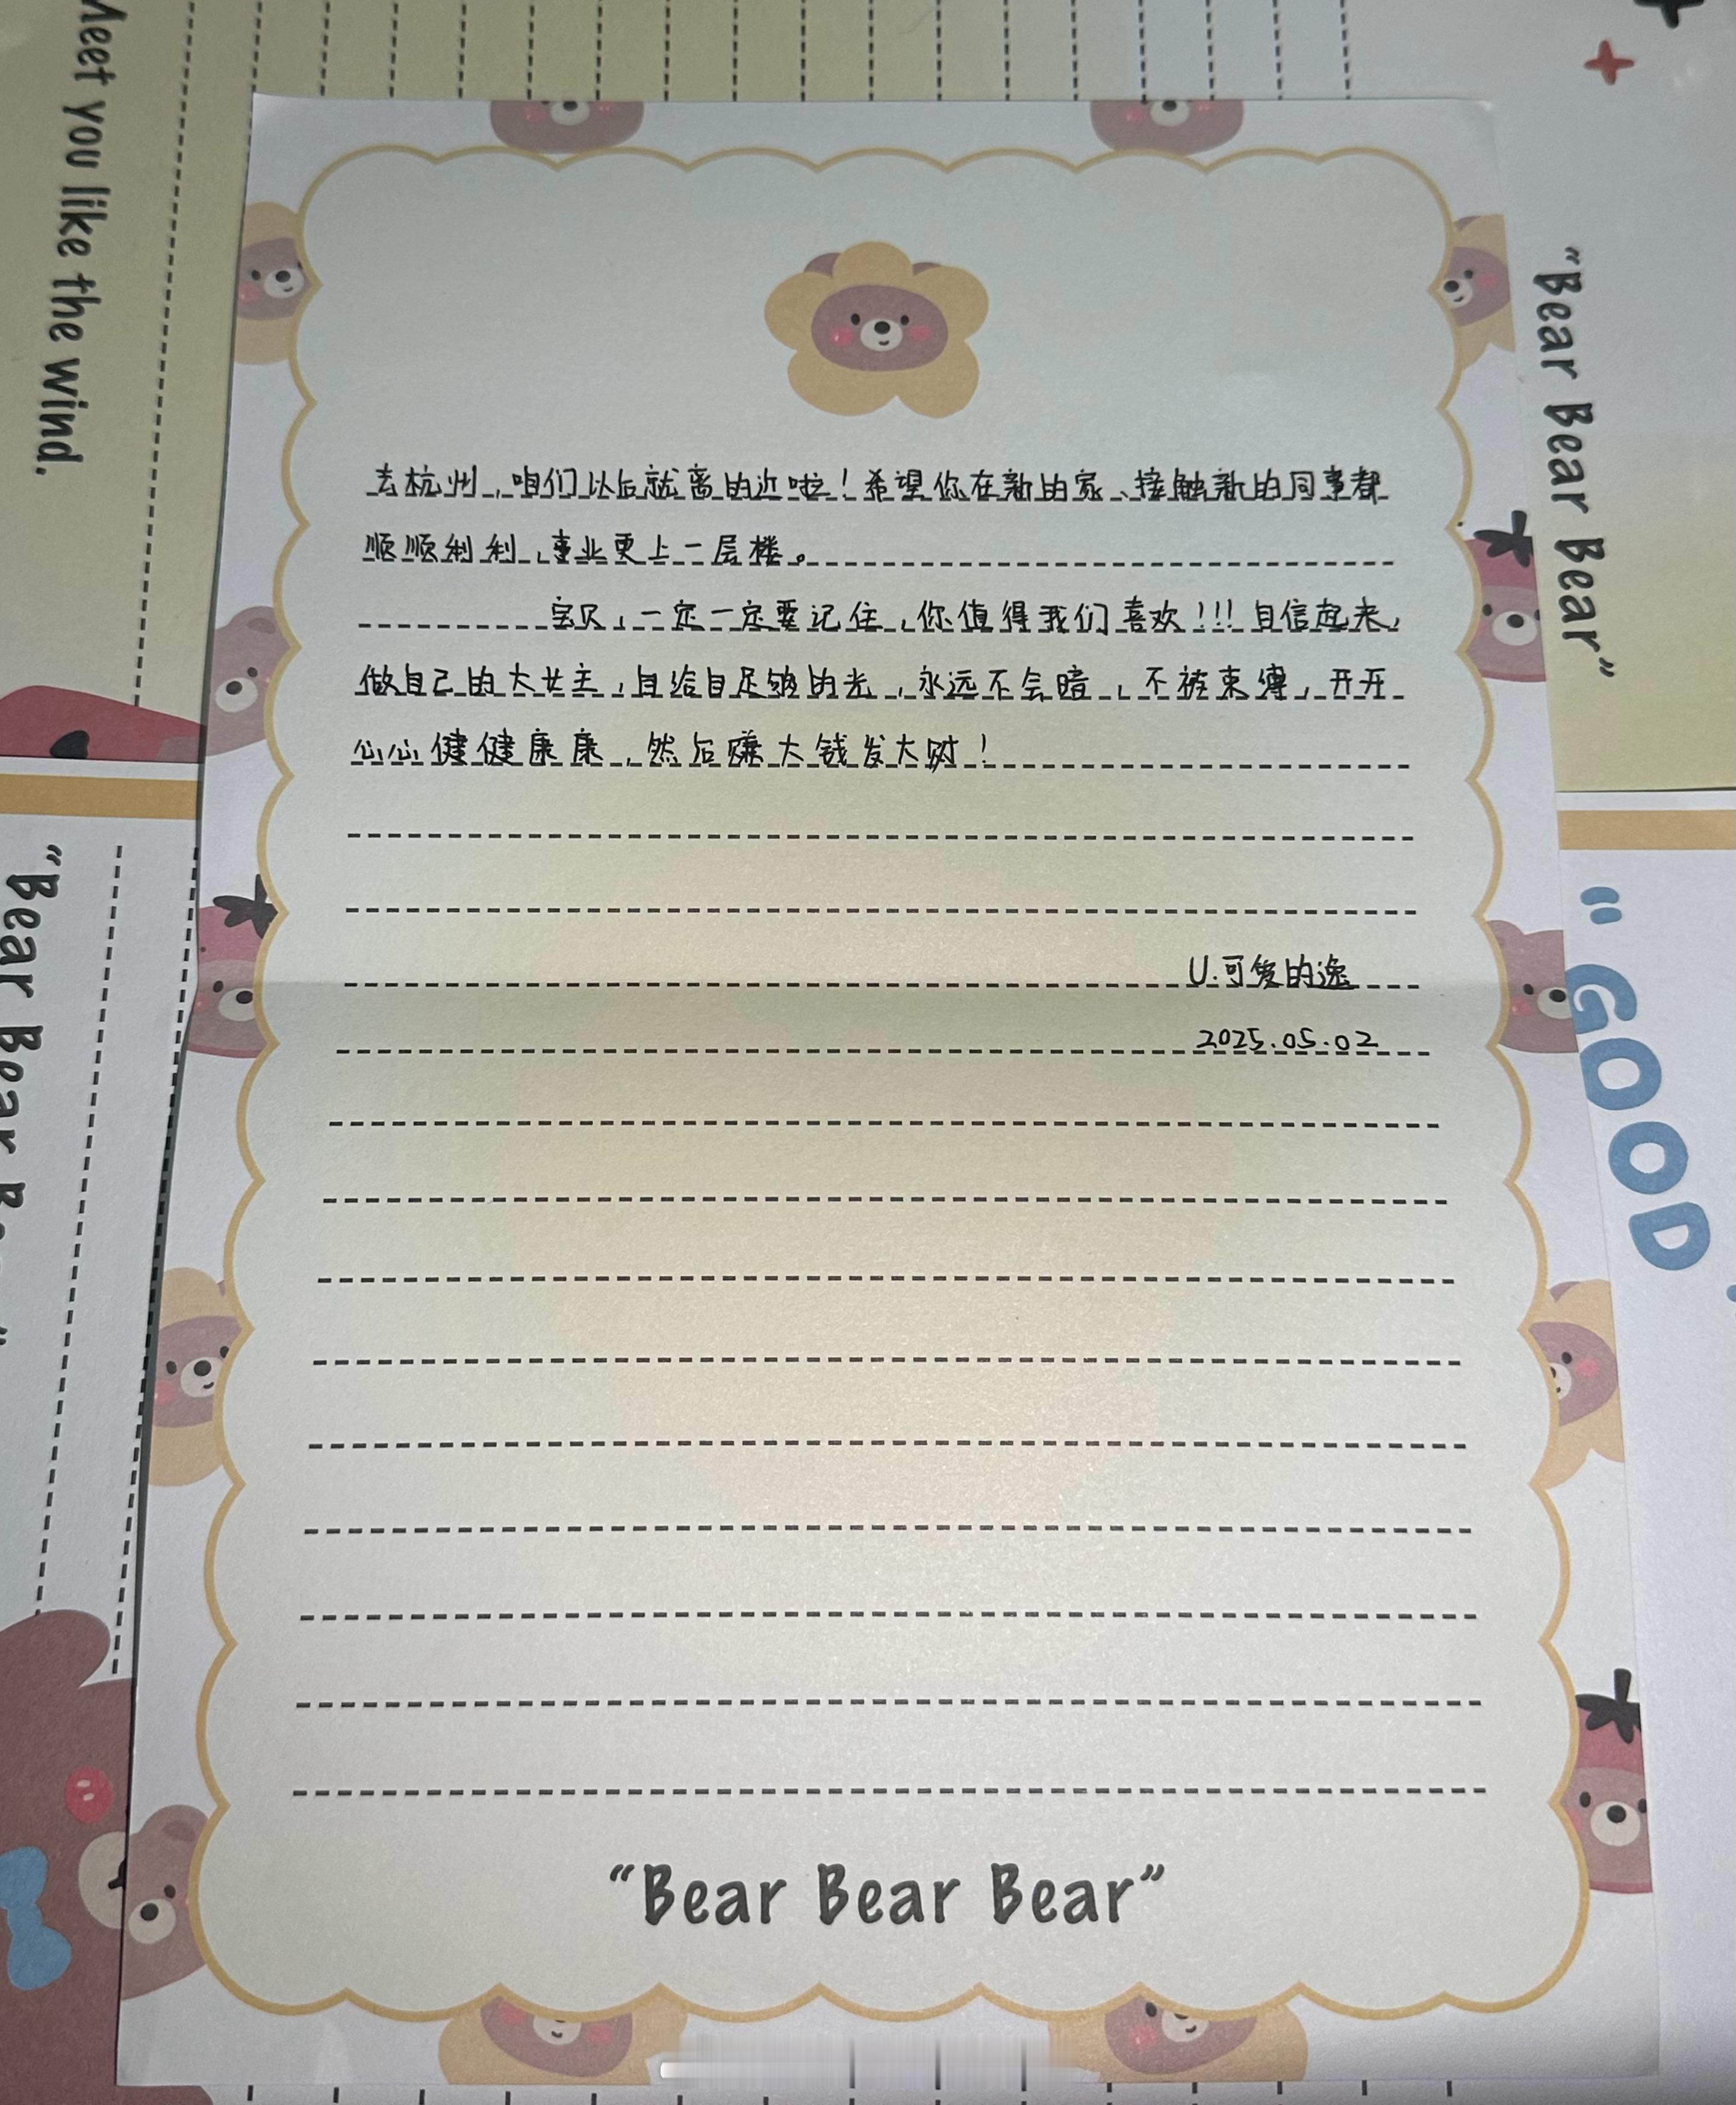 Meet you like the wind.
"Bear Bear Bear"
去杭州，咱们以后就离的近啦！希望你在新的家、接触新的同事都
顺顺利利，事业更上一层楼。
宝贝，一定一定要记住，你值得我们喜欢！！！自信起来，
做自己的大女主，自给自足够的光，永远不会暗，不被束缚，开开
心心健健康康，然后赚大钱发大财！
U.可爱的逸
2025.05.02
"Bear Bear Bear"
"Bear Bear
"GOOD